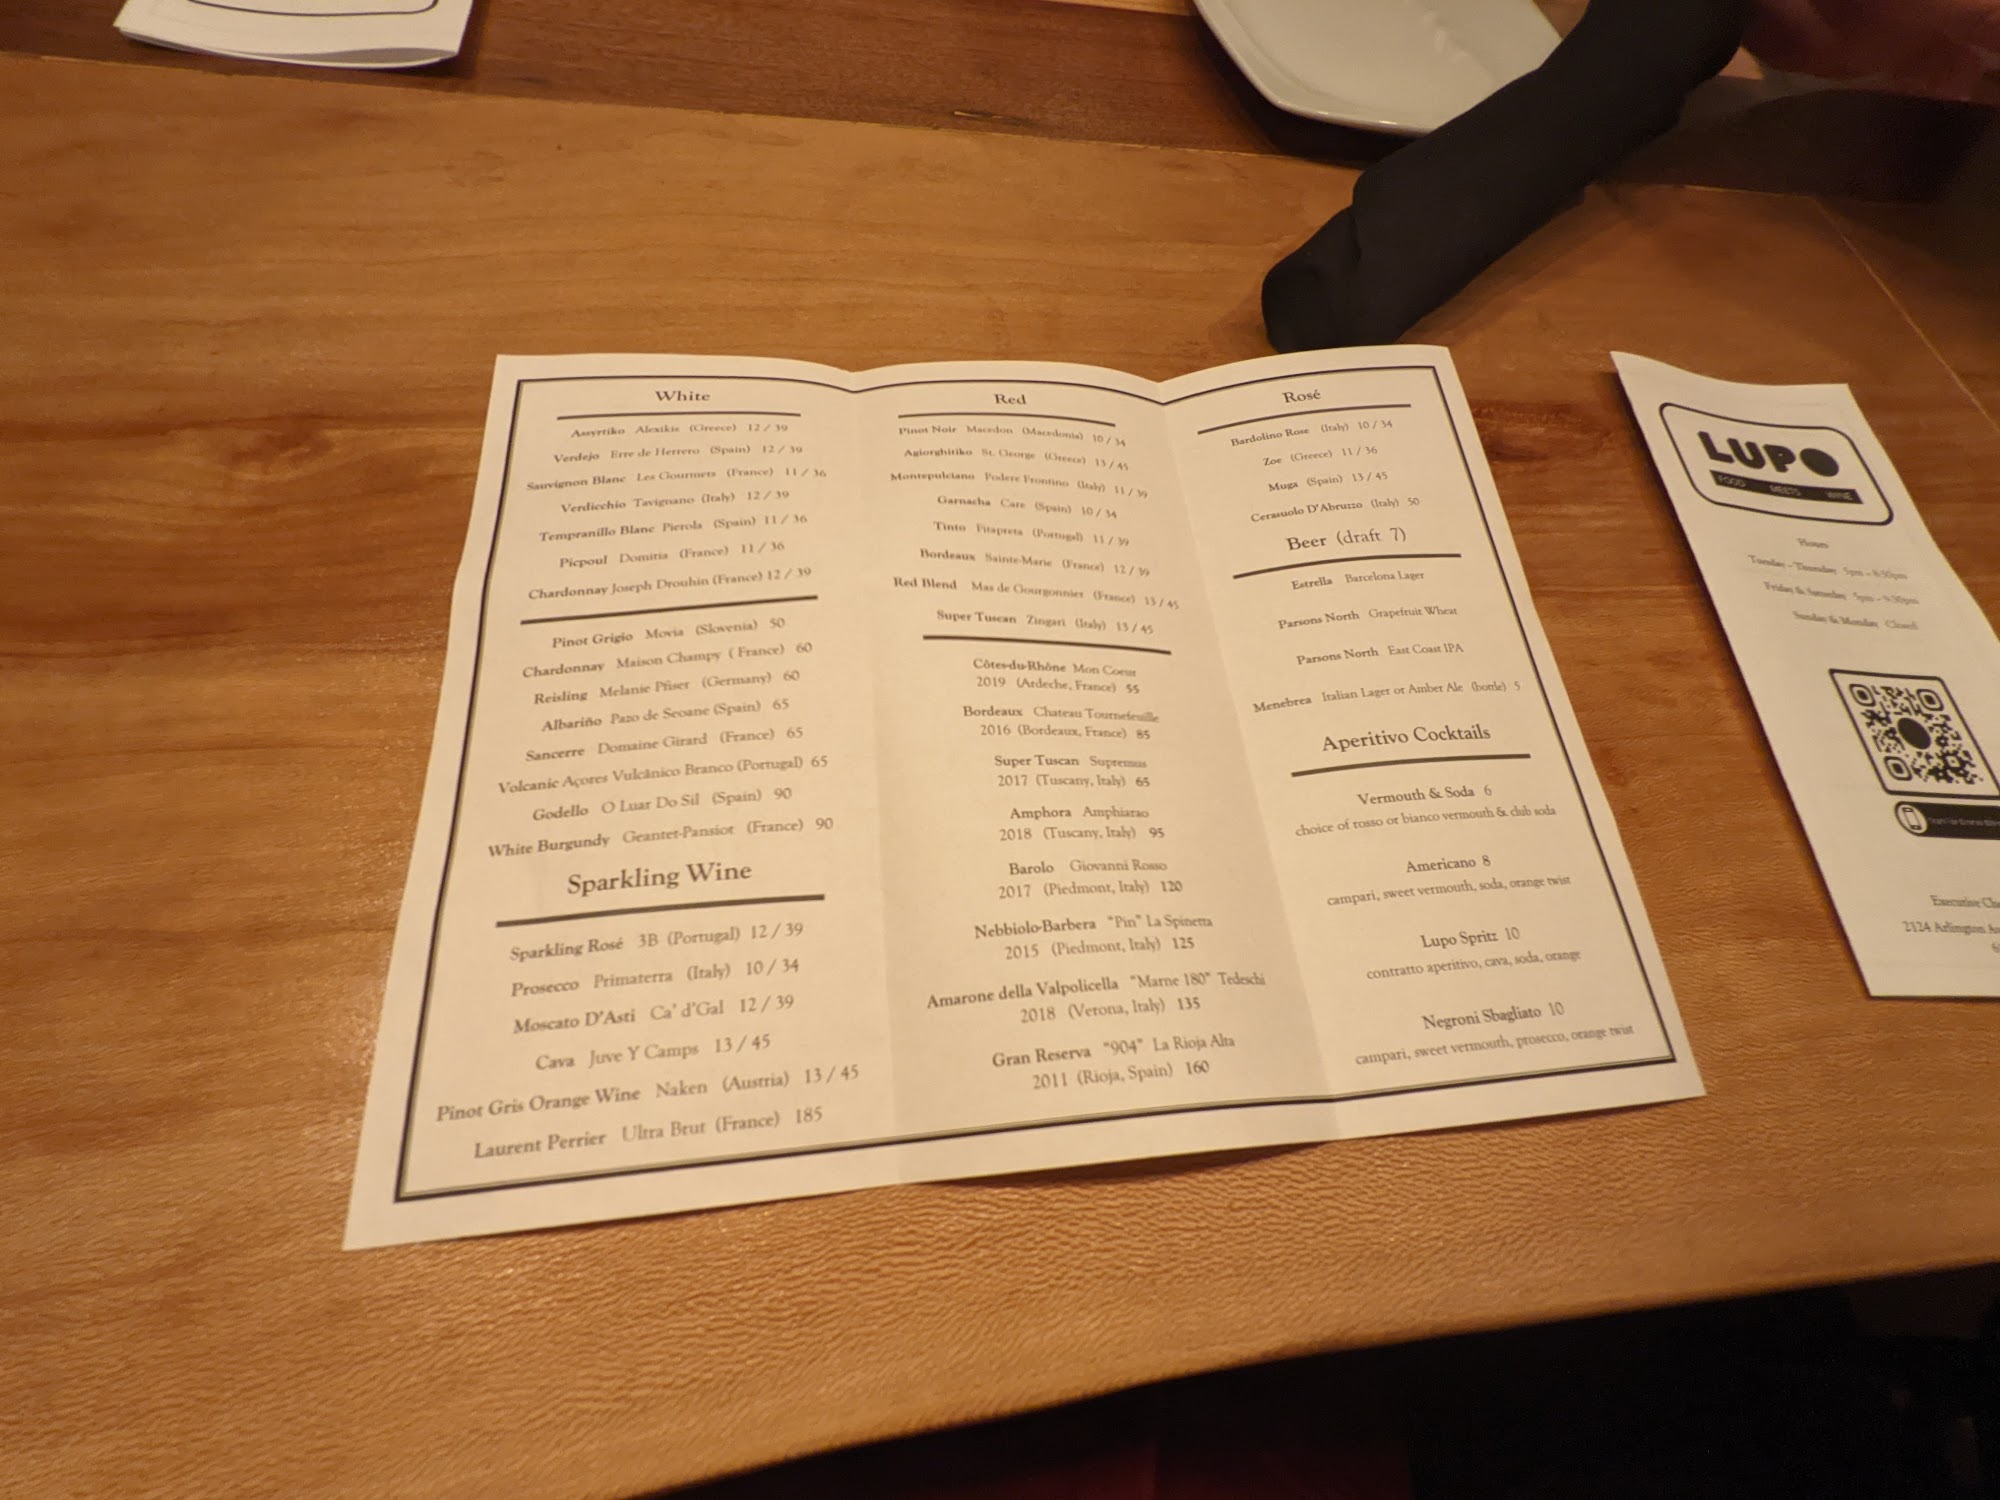 White
Assyrtiko Alexikis (Greece) 12 / 39
Verdejo Erre de Herrero (Spain) 12 / 39
Sauvignon Blanc Les Gourmets (France) 11 / 36
Verdicchio Tavignano (Italy) 12 / 39
Tempranillo Blanc Pierola (Spain) 11 / 36
Picpoul Domitia (France) 11 / 36
Chardonnay Joseph Drouhin (France) 12 / 39
Pinot Grigio Movia (Slovenia) 50
Chardonnay Maison Champy ( France) 60
Reisling Melanie Pfiser (Germany) 60
Albariño Pazo de Seoane (Spain) 65
Sancerre Domaine Girard (France) 65
Volcanic Açores Vulcânico Branco (Portugal) 65
Godello O Luar Do Sil (Spain) 90
White Burgundy Geantet-Pansiot (France) 90
Sparkling Wine
Sparkling Rosé 3B (Portugal) 12 / 39
Prosecco Primaterra (Italy) 10 / 34
Moscato D'Asti Ca' d'Gal 12 / 39
Cava Juve Y Camps 13 / 45
Pinot Gris Orange Wine Naken (Austria) 13 / 45
Laurent Perrier Ultra Brut (France) 185
Red
Pinot Noir Macedon (Macedonia) 10 / 34
Agiorghitiko St. George (Greece) 13 / 45
Montepulciano Podere Frontino (Italy) 11 / 39
Garnacha Care (Spain) 10 / 34
Tinto Fitapreta (Portugal) 11 / 39
Bordeaux Sainte-Marie (France) 12 / 39
Red Blend Mas de Gourgonnier (France) 13 / 45
Super Tuscan Zingari (Italy) 13 / 45
Côtes-du-Rhône Mon Coeur
2019 (Ardeche, France) 55
Bordeaux Chateau Tournefeuille
2016 (Bordeaux, France) 85
Super Tuscan Supremus
2017 (Tuscany, Italy) 65
Amphora Amphiarao
2018 (Tuscany, Italy) 95
Barolo Giovanni Rosso
2017 (Piedmont, Italy) 120
Nebbiolo-Barbera "Pin" La Spinetta
2015 (Piedmont, Italy) 125
Amarone della Valpolicella "Marne 180" Tedeschi
2018 (Verona, Italy) 135
Gran Reserva "904" La Rioja Alta
2011 (Rioja, Spain) 160
Rosé
Bardolino Rose (Italy) 10 / 34
Zoe (Greece) 11 / 36
Muga (Spain) 13 / 45
Cerasuolo D'Abruzzo (Italy) 50
Beer (draft 7)
Estrella Barcelona Lager
Parsons North Grapefruit Wheat
Parsons North East Coast IPA
Menebrea Italian Lager or Amber Ale (bottle) 5
Aperitivo Cocktails
Vermouth & Soda 6
choice of rosso or bianco vermouth & club soda
Americano 8
campari, sweet vermouth, soda, orange twist
Lupo Spritz 10
contratto aperitivo, cava, soda, orange
Negroni Sbagliato 10
campari, sweet vermouth, prosecco, orange twist
LUPO
FOOD MEETS WINE
Hours
Tuesday - Thursday 5pm - 8:30pm
Friday & Saturday 5pm - 9:30pm
Sunday & Monday Closed
Executive
2124 Arlington